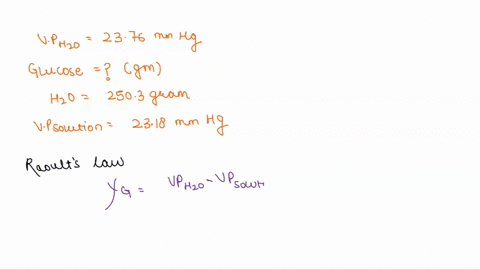 V.P H2O = 23.76 mm Hg
Glucose = ? (gm)
H2O = 250.3 gram
V.P solution = 23.18 mm Hg
Raoult's law
XG = VP H2O - VP Soluti